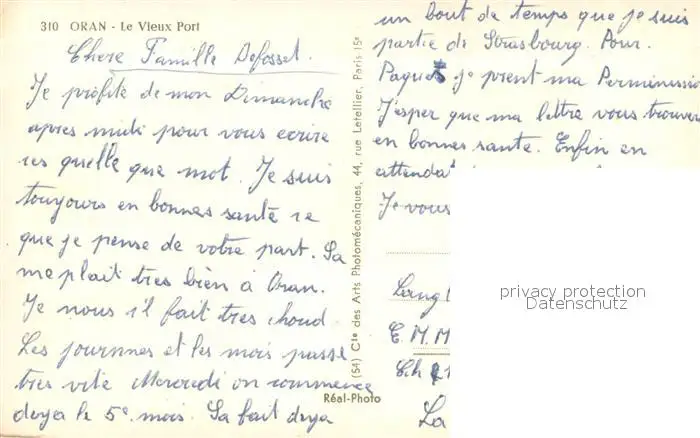 310 ORAN - Le Vieux Port
Chere Famille Defosset.
Je profite de mon Dimanche
apres midi pour vous ecrire
ces quelle que mot. Je suis
toujours en bonnes santé ce
que je pense de votre part. Sa
me plait tres bien à Oran.
Je nous il fait tres choud
Les journnes et les mois passe
tres vite Mercredi on commence
deja le 5e mois. Sa fait deja
un bout de temps que je suis
partie de Strasbourg. Pour
Paques je prent ma Permission
J'esper que ma lettre vous trouver
en bonnes sante. Enfin en
attendat
Je vous
E.M.M
La
(54) Cie des Arts Photomécaniques, 44, rue Letellier, Paris-15e
Réal-Photo
privacy protection
Datenschutz